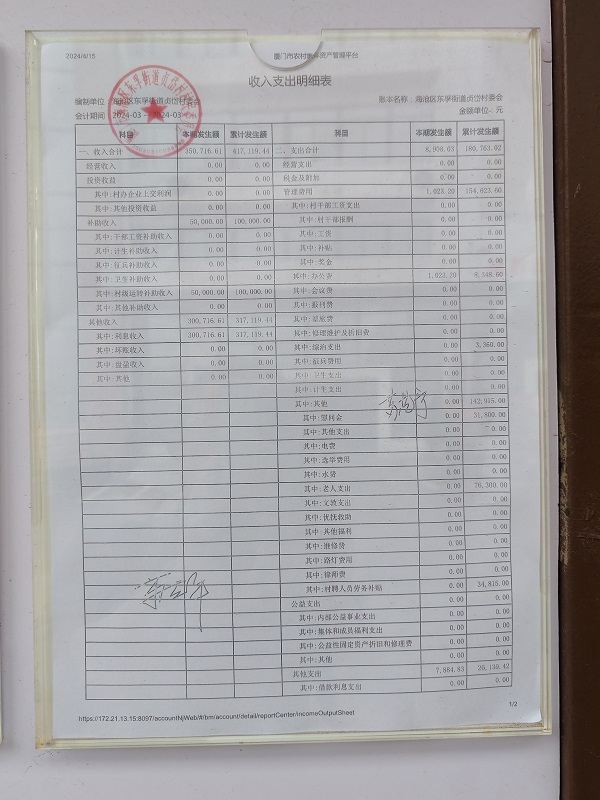 2024/4/15 厦门市农村集体资产管理平台
收入支出明细表
编制单位：海沧区东孚街道贞岱村委会 账本名称：海沧区东孚街道贞岱村委会
会计期间：2024-03 -- 2024-03 金额单位：元
科目 本期发生额 累计发生额 科目 本期发生额 累计发生额
一、收入合计 350,716.61 417,119.44 二、支出合计 8,908.03 180,763.02
经营收入 0.00 0.00 经营支出 0.00 0.00
投资收益 0.00 0.00 税金及附加 0.00 0.00
其中:村办企业上交利润 0.00 0.00 管理费用 1,023.20 154,623.60
其中:其他投资收益 0.00 0.00 其中:村干部工资支出 0.00 0.00
补助收入 50,000.00 100,000.00 其中:村干部报酬 0.00 0.00
其中:干部工资补助收入 0.00 0.00 其中:工资 0.00 0.00
其中:计生补助收入 0.00 0.00 其中:补贴 0.00 0.00
其中:征兵补助收入 0.00 0.00 其中:奖金 0.00 0.00
其中:卫生补助收入 0.00 0.00 其中:办公费 1,023.20 8,348.60
其中:村级运转补助收入 50,000.00 100,000.00 其中:会议费 0.00 0.00
其中:其他补助收入 0.00 0.00 其中:报刊费 0.00 0.00
其他收入 300,716.61 317,119.44 其中:差旅费 0.00 0.00
其中:利息收入 300,716.61 317,119.44 其中:修理维护及折旧费 0.00 0.00
其中:坏账收入 0.00 0.00 其中:综治支出 0.00 3,360.00
其中:盘盈收入 0.00 0.00 其中:征兵费用 0.00 0.00
其中:其他 0.00 0.00 其中:卫生支出 0.00 0.00
其中:计生支出 0.00 0.00
其中:其他 0.00 142,915.00
其中:慰问金 0.00 31,800.00
其中:其他支出 0.00 0.00
其中:电费 0.00 0.00
其中:选举费用 0.00 0.00
其中:水费 0.00 0.00
其中:老人支出 0.00 76,300.00
其中:文教支出 0.00 0.00
其中:优抚救助 0.00 0.00
其中:其他福利 0.00 0.00
其中:维修费 0.00 0.00
其中:路灯费用 0.00 0.00
其中:律师费 0.00 0.00
其中:村聘人员劳务补贴 0.00 34,815.00
公益支出 0.00 0.00
其中:内部公益事业支出 0.00 0.00
其中:集体和成员福利支出 0.00 0.00
其中:公益性固定资产折旧和修理费 0.00 0.00
其中:其他 0.00 0.00
其他支出 7,884.83 26,139.42
其中:借款利息支出 0.00 0.00
https://172.21.13.15:8097/accountNjWeb/#/bm/account/detail/reportCenter/incomeOutputSheet 1/2